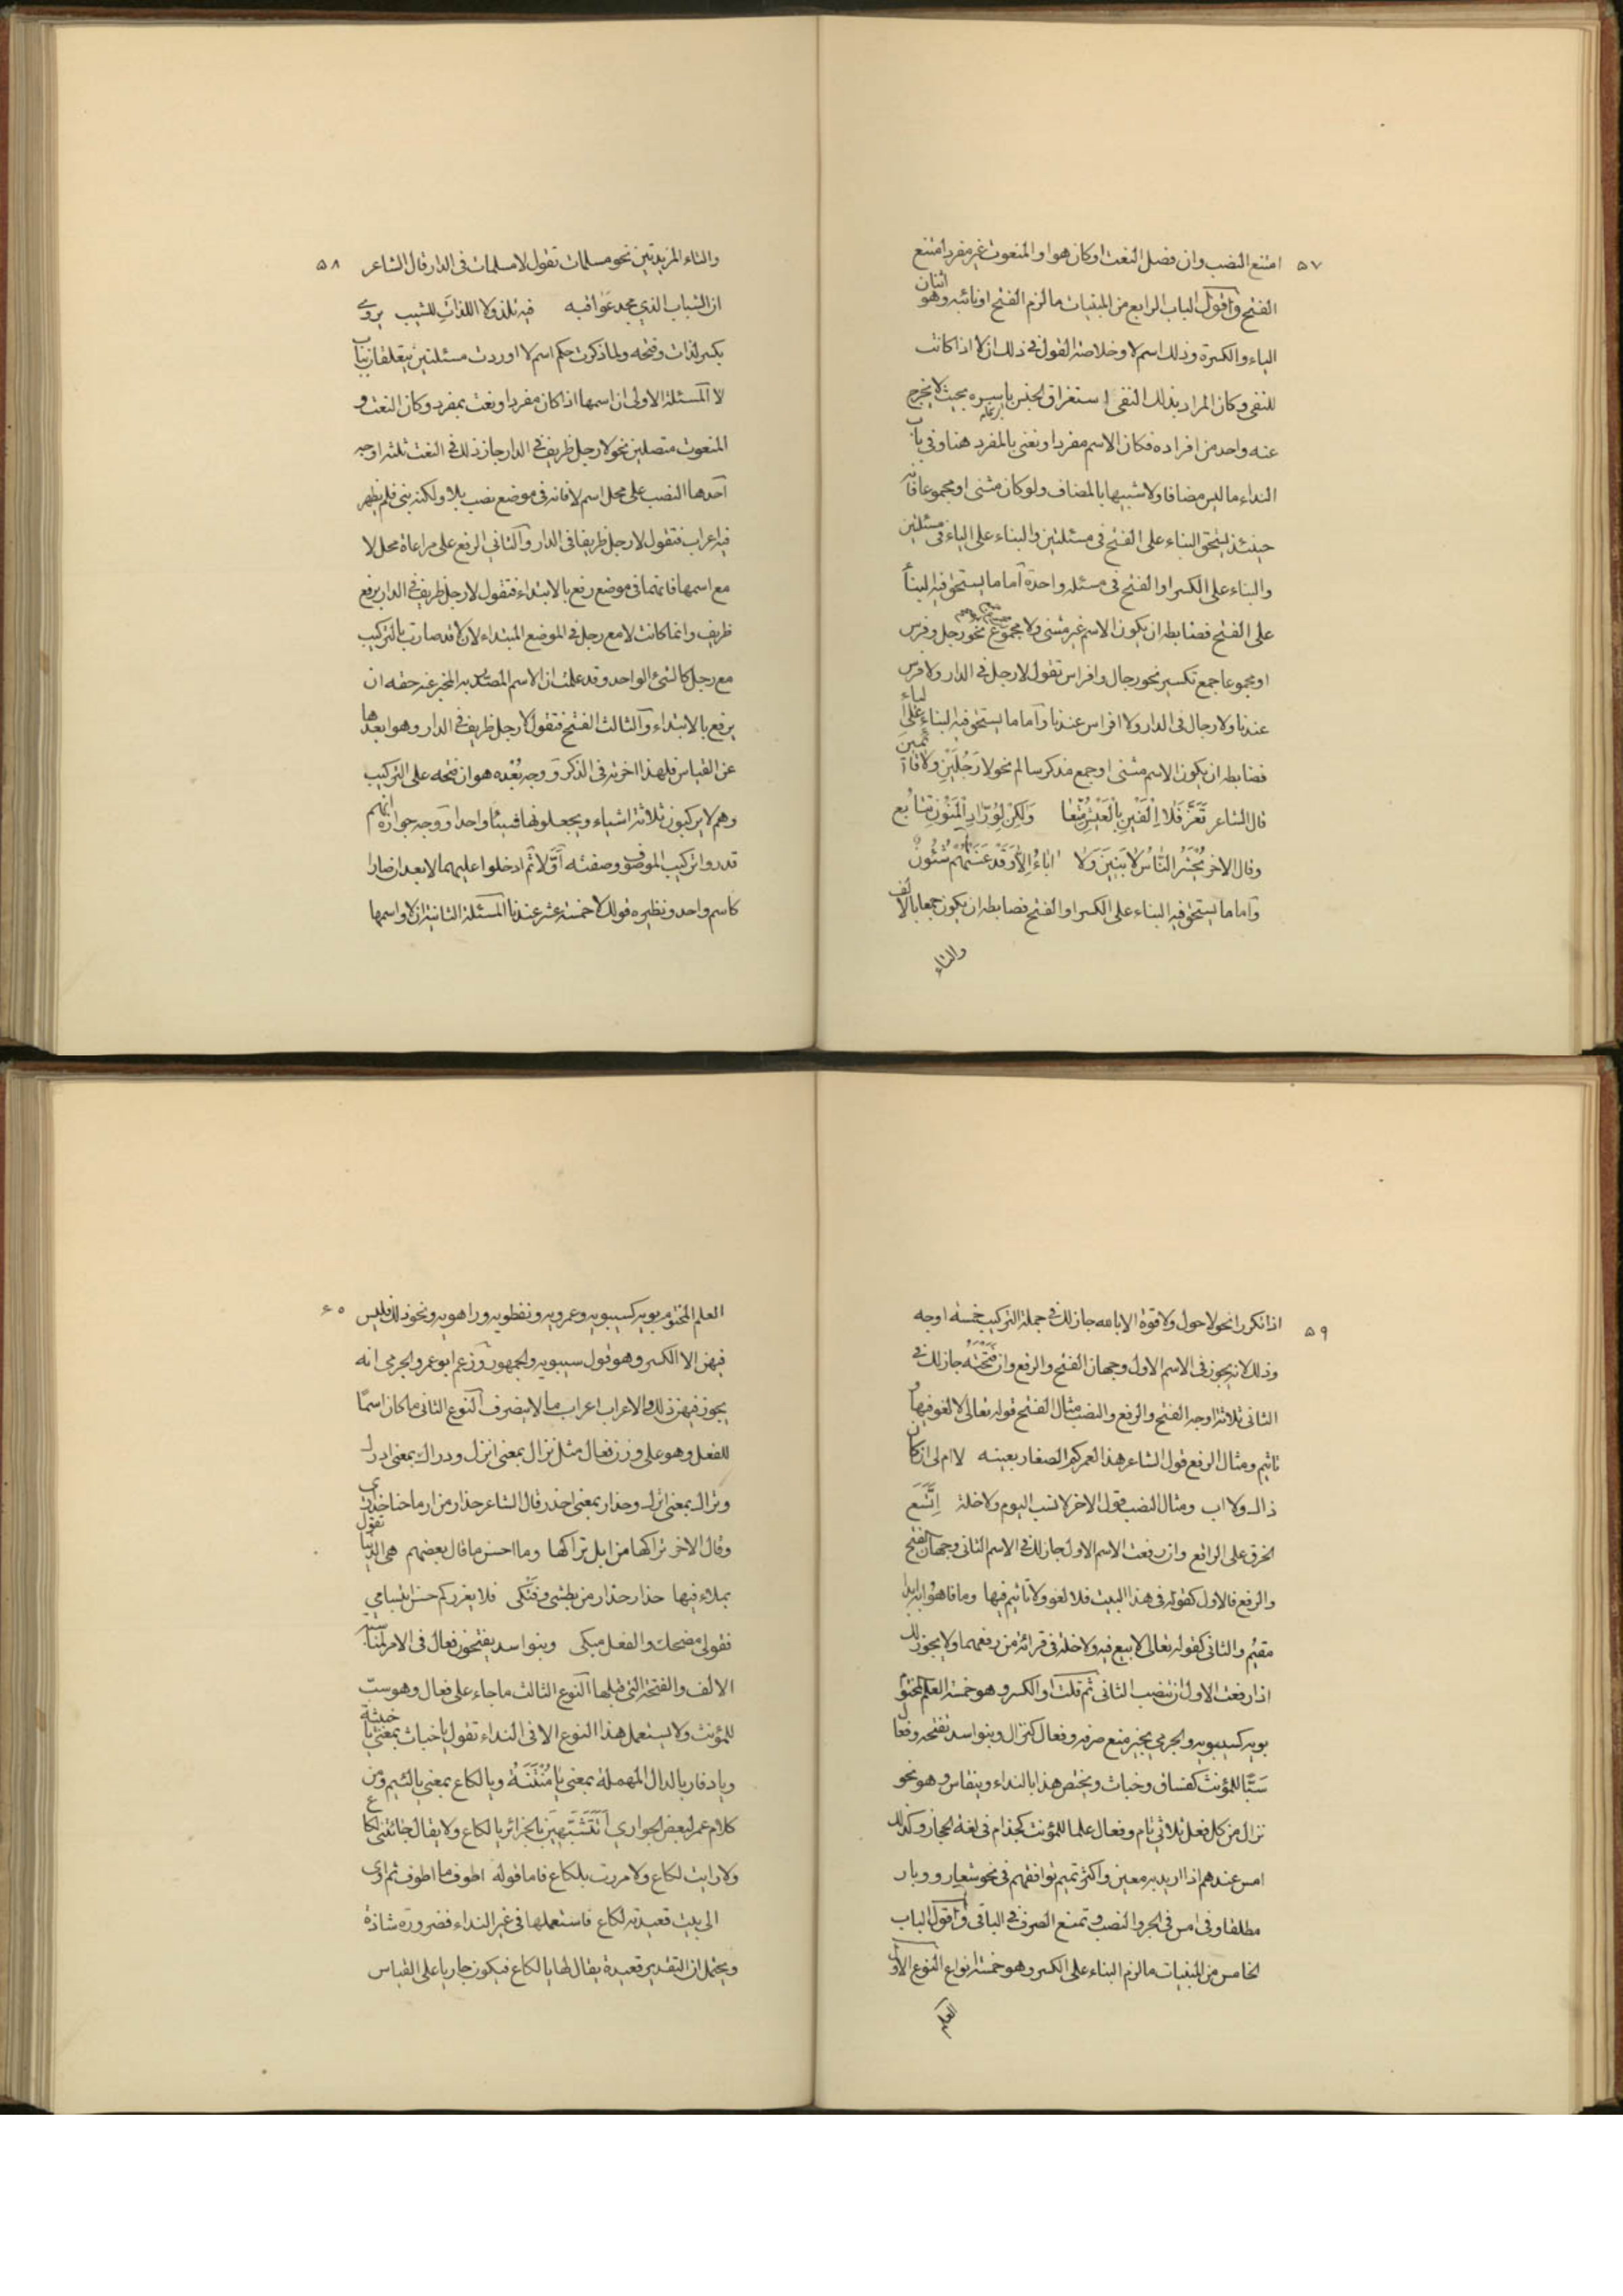 ٥٧
امتنع النصب وان فصل النعت او كان هو او المنعوت غير مفرد امتنع
الفتح واقول الباب الرابع من المبنيات ما لزم الفتح او نائبه وهو اثنان
الياء والكسرة وذلك اسم لا وخلاصة القول في ذلك ان لا اذا كانت
للنفي وكان المراد بذلك النفي استغراق الجنس باسره بحيث لا يخرج
عنه واحد من افراده فكان الاسم مفردا ونعني بالمفرد هنا وفي باب
النداء ما ليس مضافا ولا شبيها بالمضاف ولو كان مثنى او مجموعا فانه
حينئذ يستحق البناء على الفتح في مسئلتين والبناء على الياء في مسئلتين
والبناء على الكسر او الفتح في مسئلة واحدة اما ما يستحق فيه البناء
على الفتح فضابطه ان يكون الاسم غير مثنى ولا مجموع نحو رجل وفرس
او مجموعا جمع تكسير نحو رجال وافراس تقول لا رجل في الدار ولا فرس
عندنا ولا رجال في الدار ولا افراس عندنا واما ما يستحق فيه البناء على الياء
فضابطه ان يكون الاسم مثنى او جمع مذكر سالم نحو لا رَجُلَيْنِ ولا قائمينَ
قال الشاعر تَعَزَّ فَلا اِلْفَيْنِ بِالْعَيْشِ مُتِّعا وَلكِنْ لِوُرّادِ الْمَنُونِ تتابُع
وقال الاخر يُحْشَرُ النّاسُ لا بَنِينَ وَلا اباءَ اِلّا وَقَدْ عَنَتْهُمْ شُئُونُ
واما ما يستحق فيه البناء على الكسر او الفتح فضابطه ان يكون جمعا بالالف
والتاء
٥٨
والتاء المزيدتين نحو مسلمات تقول لا مسلمات في الدار قال الشاعر
ان الشباب الذي مجد عَواقبه فيه نلذ ولا اللذاتِ للشيب يروى
بكسر لذات وفتحه ولما ذكرت حكم اسم لا اوردت مسئلتين يتعلقان بباب
لا المسئلة الاولى ان اسمها اذا كان مفردا ونعت بمفرد وكان النعت و
المنعوت متصلين نحو لا رجل ظريف في الدار جاز ذلك في النعت ثلثة اوجه
احدها النصب على محل اسم لا فانه في موضع نصب بلا ولكنه بني فلم يظهر
فيه اعراب فتقول لا رجل ظريفا في الدار والثاني الرفع على مراعاة محل لا
مع اسمها فانهما في موضع رفع بالابتداء فتقول لا رجل ظريف في الدار برفع
ظريف وانما كانت لا مع رجل في الموضع المبتداء لان لا قد صارت بالتركيب
مع رجل كالشئ الواحد وقد علمت ان الاسم المصدر به المخبر عنه حقه ان
يرفع بالابتداء والثالث الفتح فتقول لا رجل ظريف في الدار وهو ابعدها
عن القياس فلهذا اخرته في الذكر ووجه بُعْده هو ان فتحه على التركيب
وهم لا يركبون ثلاثة اشياء ويجعلونها شيئا واحدا ووجه جوازه انهم
قدروا تركيب الموصوف وصفته اوّلا ثم ادخلوا عليهما لا بعد ان صارا
كاسم واحد ونظيره قولك لا خمسة عشر عندنا المسئلة الثانية ان لا واسمها
٥٩
اذا تكرر انحو لا حول ولا قوة الا بالله جاز لك في جملة التركيب خمسة اوجه
وذلك لانه يجوز في الاسم الاول وجهان الفتح والرفع وان فَتَحْتَهُ جاز لك في
الثاني ثلاثة اوجه الفتح والرفع والنصب مثال الفتح قوله تعالى لا لغو فيها ولا
تاثيم ومثال الرفع قول الشاعر هذا لعمركم الصغار بعينه لا ام لي ان كان
ذاك ولا اب ومثال النصب قول الاخر لا نسب اليوم ولا خلة اِتَّسَع
الخرق على الراقع وان رفعت الاسم الاول جاز لك في الاسم الثاني وجهان الفتح
والرفع فالاول كقوله في هذا البيت فلا لغو ولا تاثيم فيها وما فاهوا به ابدا
مقيُم والثاني كقوله تعالى لا بيع فيه ولا خلة في قرائة من رفعهما ولا يجوز لك
اذا رفعت الاول ان تنصب الثاني ثم قلت او الكسر وهو خمسة العلم المختوم
بويه كسيبويه والجرمي يجيز منع صرفه وفعال كنزال وبنو اسد تفتحه وفعال
سَبًّا للمؤنث كفساق وخباث ويختص هذا بالنداء وينقاس هو ونحو
نزال من كل فعل ثلاثي تام وفعال علما للمؤنث كحذام في لغة الحجاز وكذلك
امس عندهم اذا اريد به معين واكثر تميم توافقهم في نحو سفار ووبار
مطلقا وفي امس في الجر والنصب وتمنع الصرف في الباقي واقول الباب
الخامس من المبنيات ما لزم البناء على الكسر وهو خمسة انواع النوع الاول
العلم
٦٠
العلم المختوم بويه كسيبويه وعمرويه ونفطويه وراهويه ونحو ذلك فليس
فيهن الا الكسر وهو قول سيبويه والجمهور وزعم ابو عمر والجرمي انه
يجوز فيهن ذلك والاعراب اعراب ما لا ينصرف النوع الثاني ما كان اسمًا
للفعل وهو على وزن فعال مثل نزال بمعنى انزل ودراك بمعنى ادرك
وتراك بمعنى اترك وحذار بمعنى احذر قال الشاعر حذار من ارماحنا حذار
وقال الاخر تراكها من ابل تراكها وما احسن ما قال بعضهم هي الدنيا تقول
بملاء فيها حذار حذار من بطشي وفَتْكي فلا يغرركم حسن ابتسامي
فقولي مضحك والفعل مبكي وبنو اسد يفتحون فعال في الامر لمناسبة
الالف والفتحة التي قبلها النوع الثالث ما جاء على فعال وهو سبّ
للمؤنث ولا يستعمل هذا النوع الا في النداء تقول يا خباث بمعنى يا خبيثة
ويا دفار بالدال المهملة بمعنى يا مُنْتَنَةُ ويا لكاع بمعنى يا لئيم ومن
كلام عمر لبعض الجواري اَتَتَشَبَّهِينَ بالحرائر يا لكاع ولا يقال جائتني لكاع
ولا رايت لكاع ولا مررت بلكاع فاما قوله اطوف ما اطوف ثم اوى
الى بيت قعيدته لكاع فاستعملها في غير النداء فضرورة شاذة
ويحتمل ان التقدير قعيدة يقال لها يا لكاع فيكون جاريا على القياس